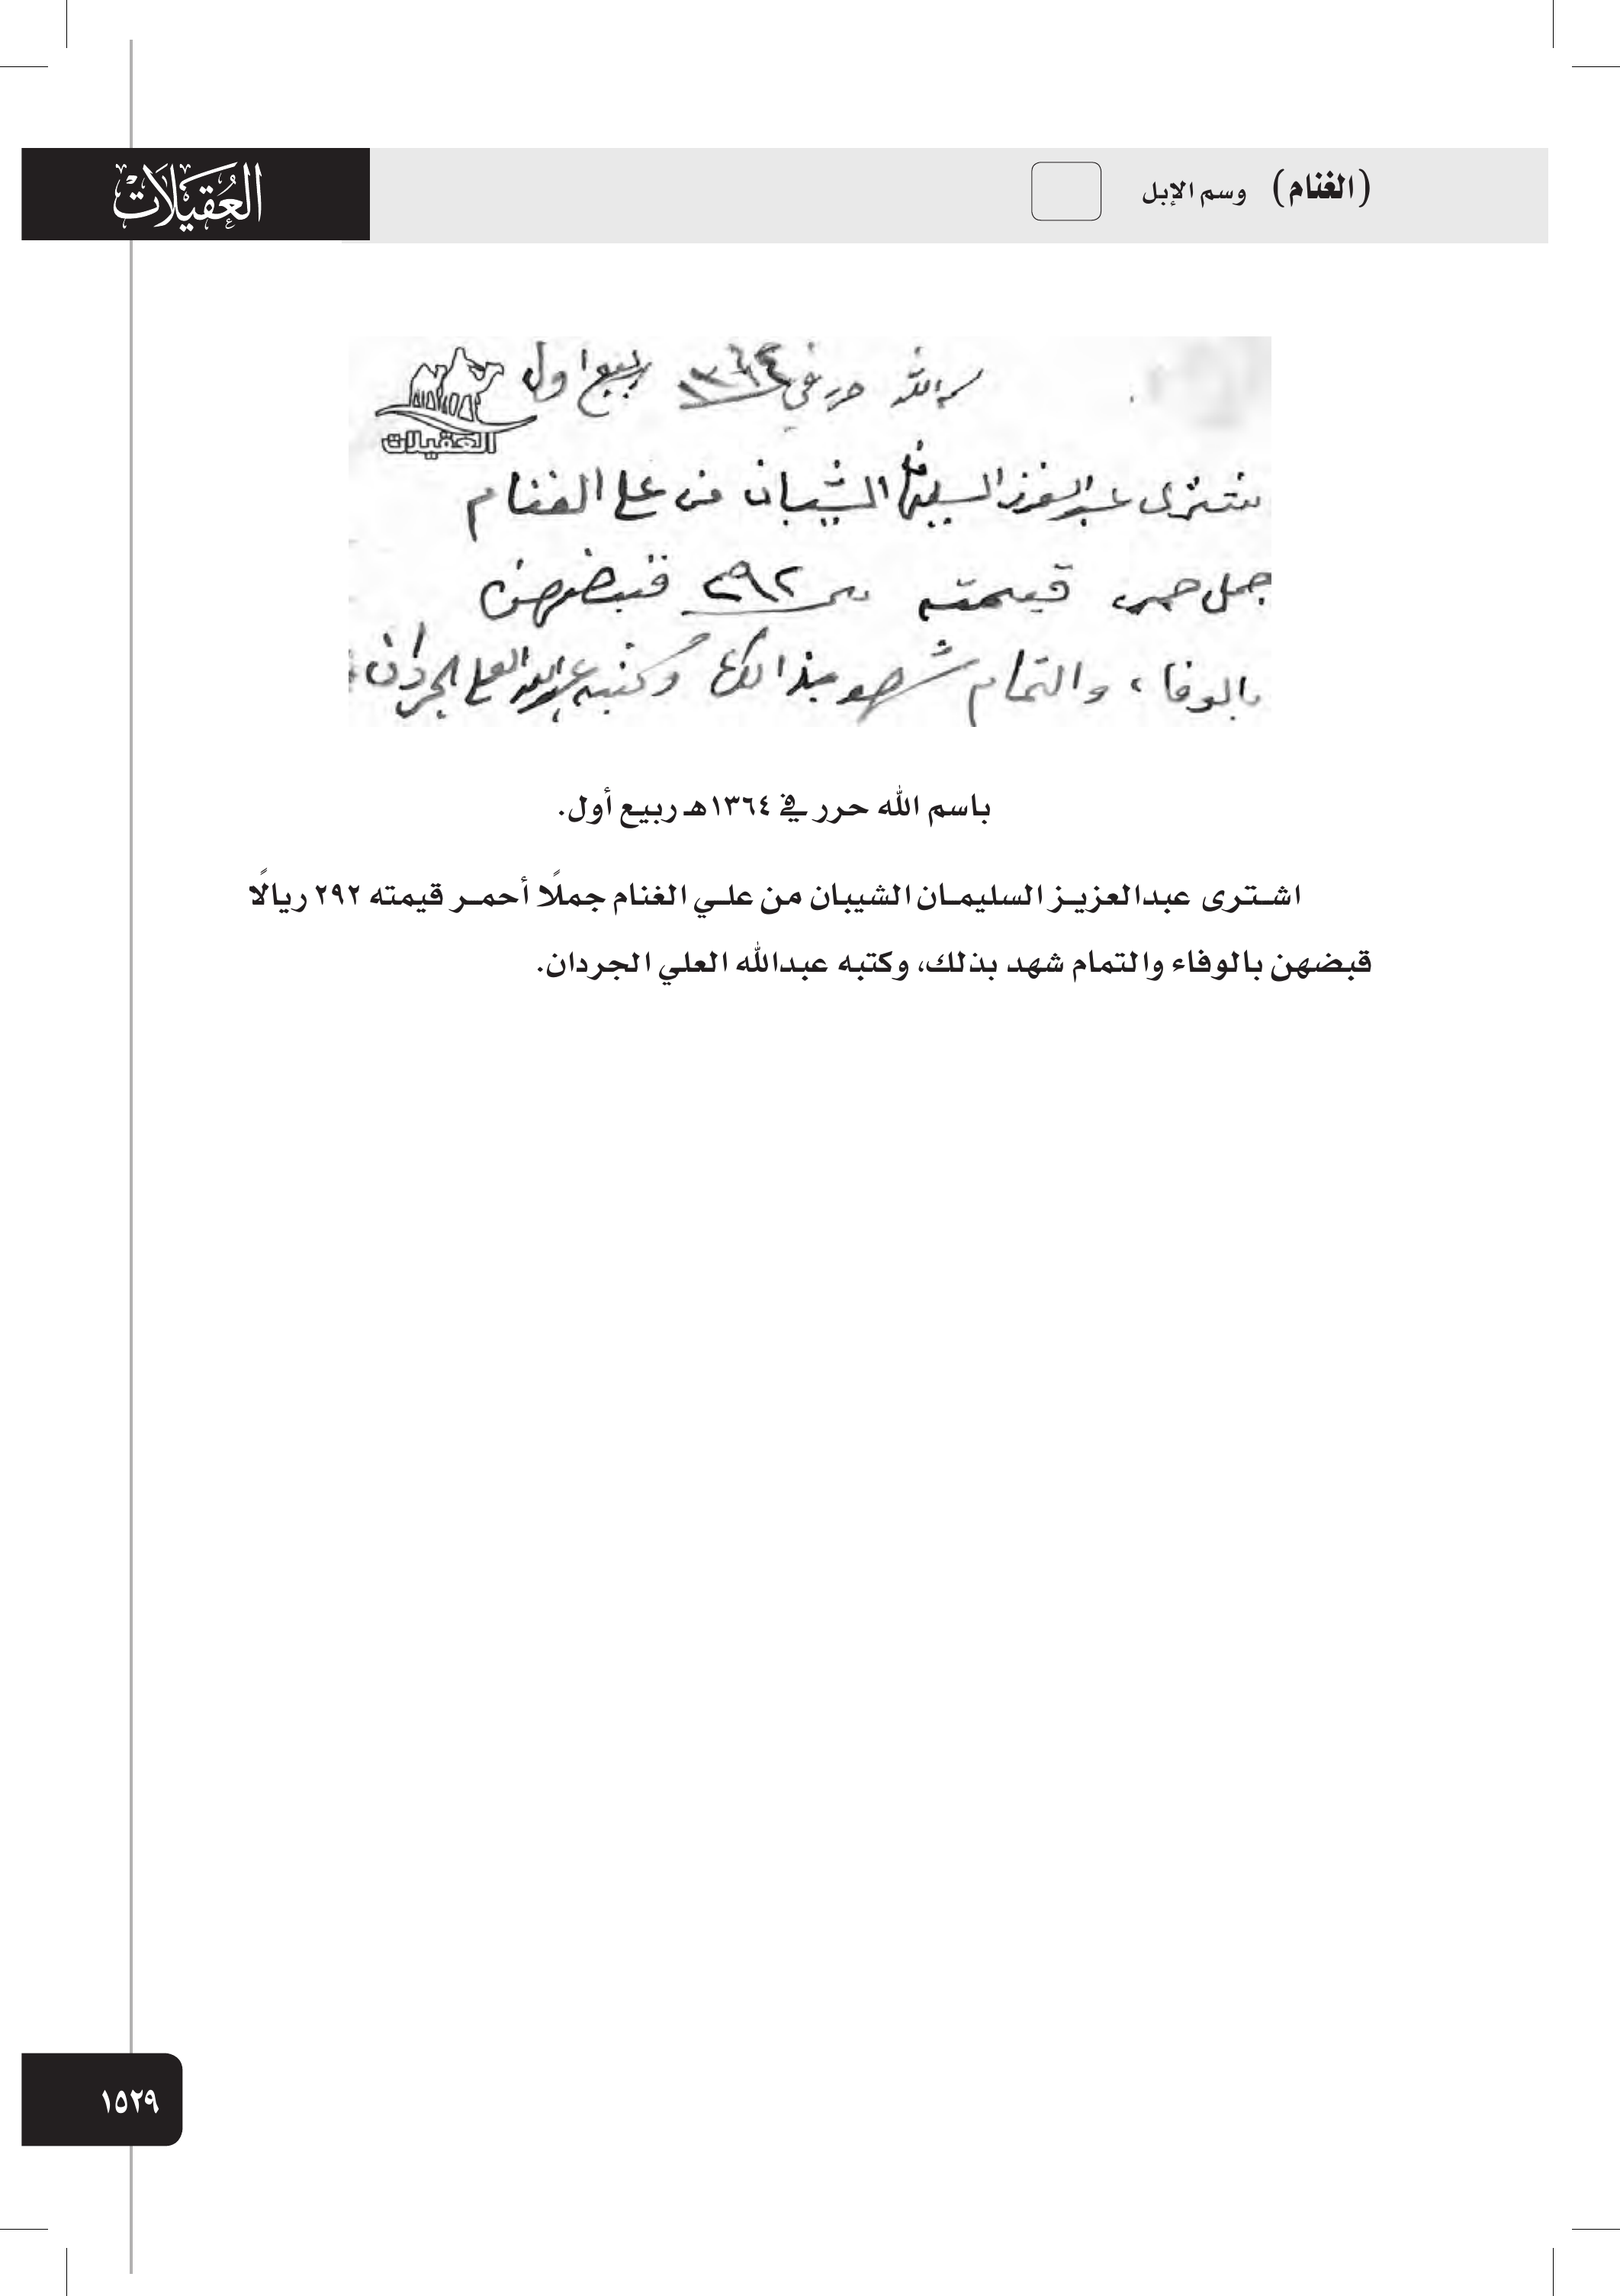 (الغنام) وسم الإبل
العُقَيْلَات
بسم الله حرر في ١٣٦٤ ربيع اول
العقيلات
اشترى عبدالعزيز السليمان الشيبان من علي الغنام
جمل حمر قيمته ٢٩٢ قبضهن
بالوفاء والتمام شهد بذالك وكتبه عبدالله العلي الجردان
باسم الله حرر في ١٣٦٤هـ ربيع أول.
اشترى عبدالعزيز السليمان الشيبان من علي الغنام جملًا أحمر قيمته ٢٩٢ ريالًا
قبضهن بالوفاء والتمام شهد بذلك، وكتبه عبدالله العلي الجردان.
١٥٢٩